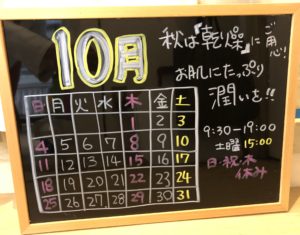 10月
秋は『乾燥』にご用心!
お肌にたっぷり
潤いを!!
日 月 火 水 木 金 土
1 2 3
4 5 6 7 8 9 10
11 12 13 14 15 16 17
18 19 20 21 22 23 24
25 26 27 28 29 30 31
9:30-19:00
土曜 15:00
日・祝・木
休み